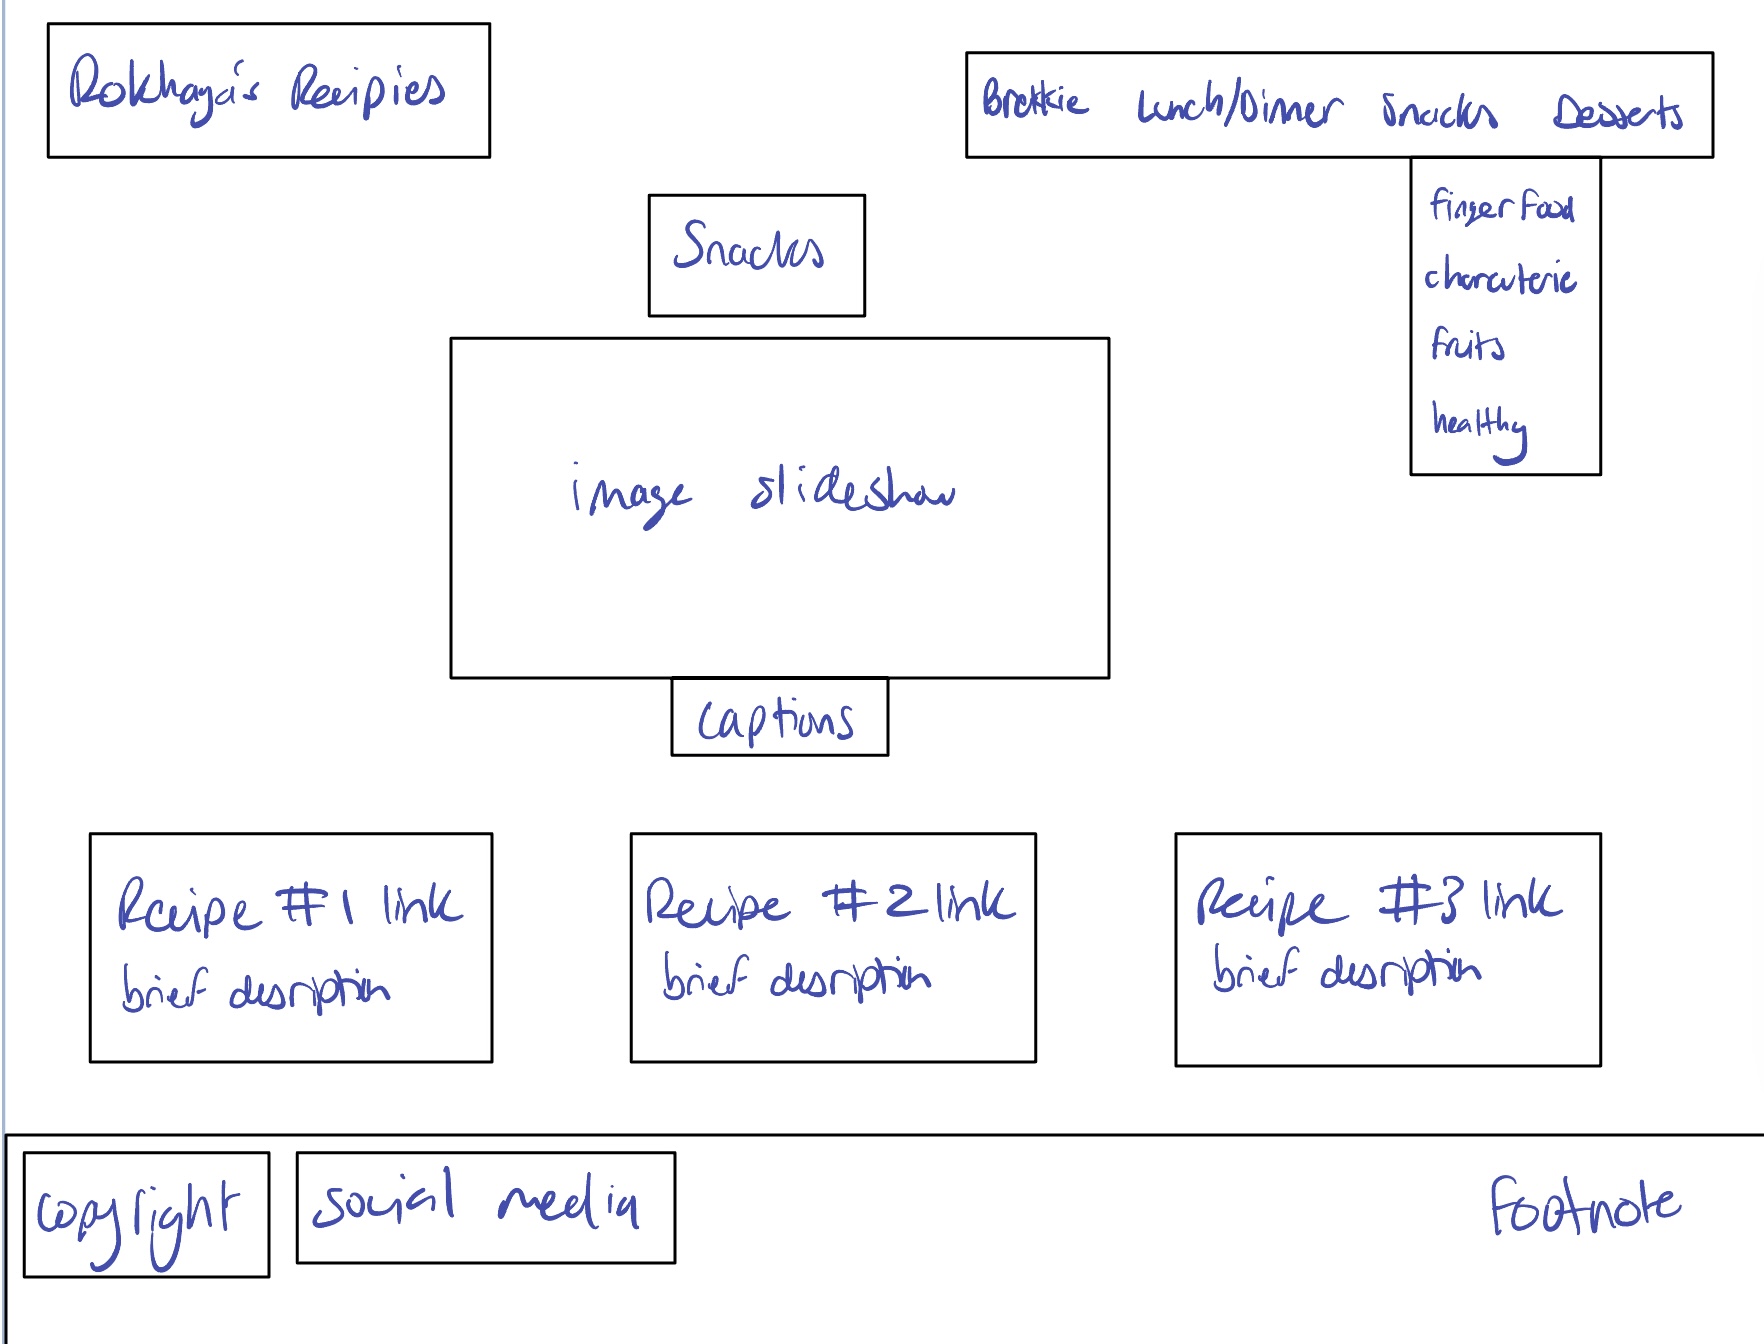 Rokhaya's Recipies
Brekkie Lunch/Dinner Snacks Desserts
finger food
charcuterie
fruits
healthy
Snacks
image slideshow
Captions
Recipe #1 link
brief desription
Recipe #2 link
brief desription
Recipe #3 link
brief desription
copyright
social media
Footnote